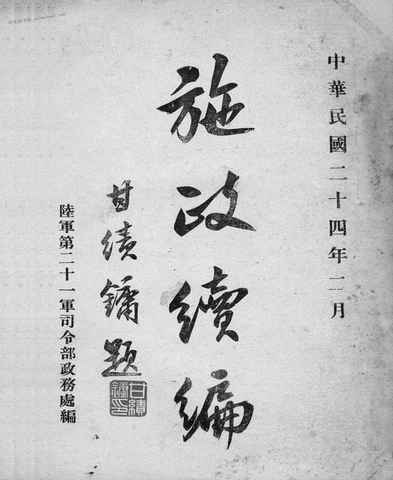 中華民國二十四年二月
施政續編
甘績鏞題
甘績鏞印
陸軍第二十一軍司令部政務處編